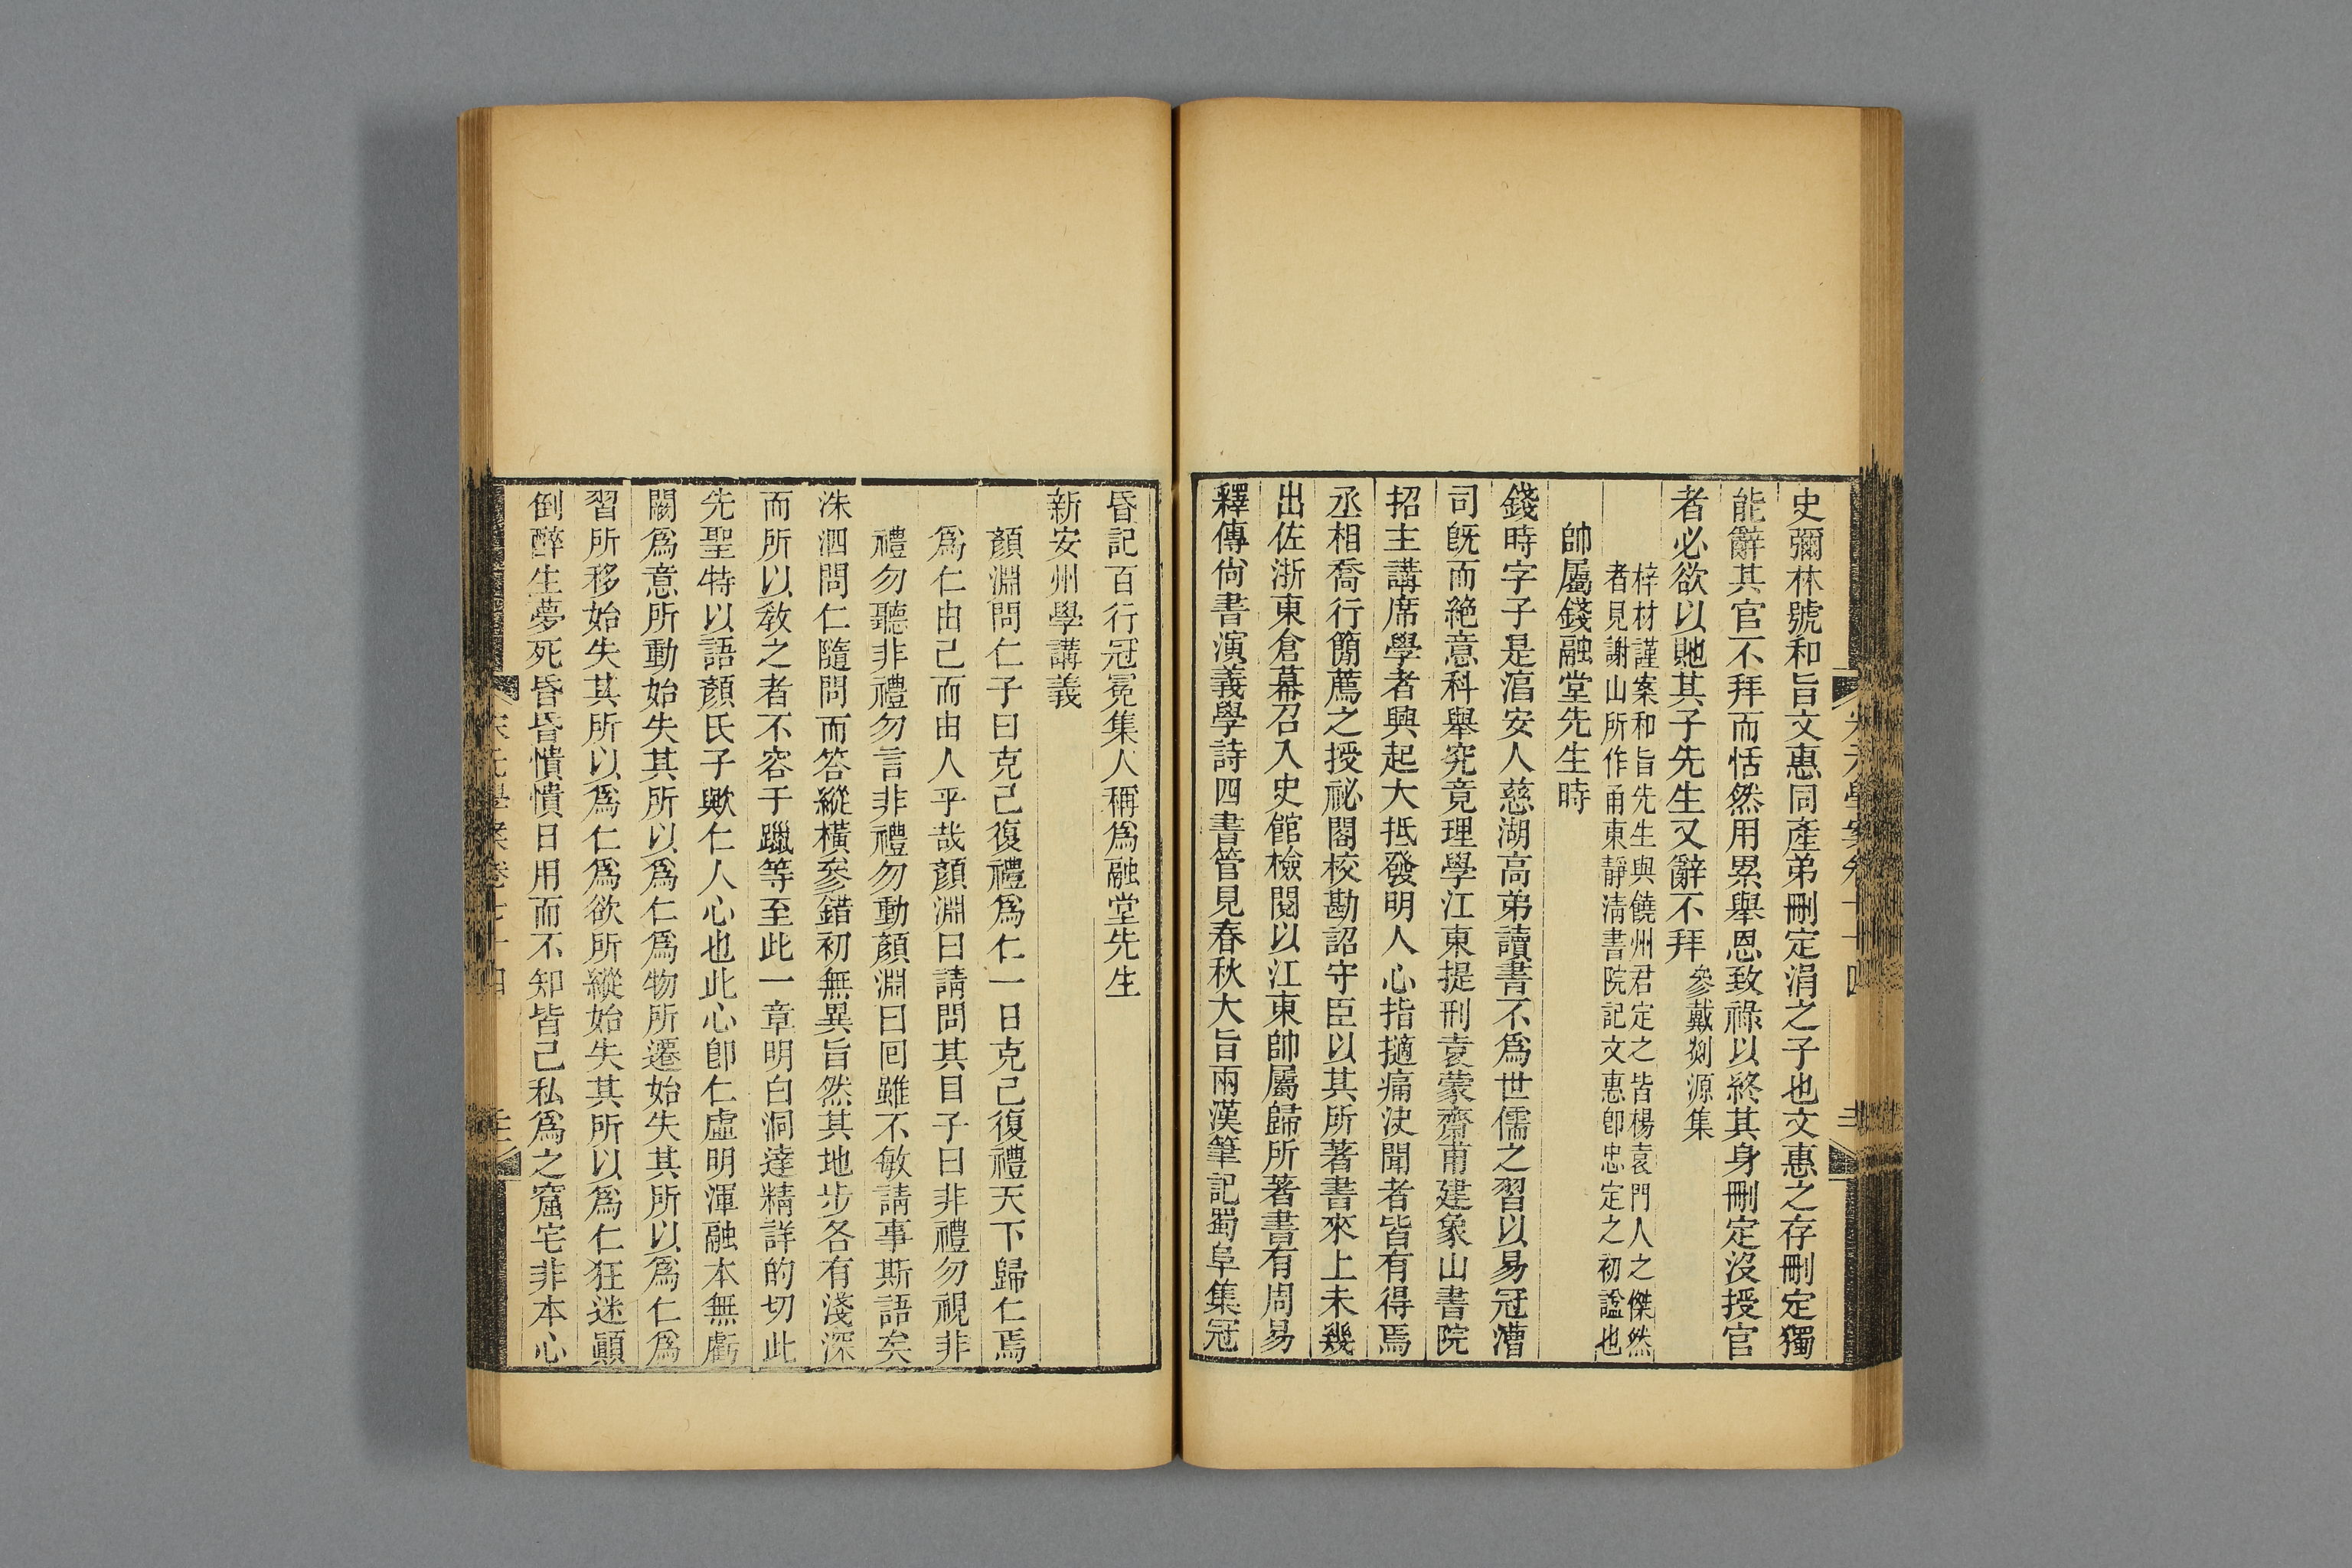 史彌林號和旨文惠同產弟刪定涓之子也文惠之存刪定獨
能辭其官不拜而恬然用累舉恩致祿以終其身刪定沒授官
者必欲以貤其子先生又辭不拜參戴剡源集
梓材謹案和旨先生與饒州君定之皆楊袁門人之傑然
者見謝山所作甬東靜淸書院記文惠卽忠定之初諡也
帥屬錢融堂先生時
錢時字子是湻安人慈湖高弟讀書不爲世儒之習以易冠漕
司旣而絕意科舉究竟理學江東提刑袁蒙齋甫建象山書院
招主講席學者興起大抵發明人心指擿痛決聞者皆有得焉
丞相喬行簡薦之授祕閣校勘詔守臣以其所著書來上未幾
出佐浙東倉幕召入史館檢閱以江東帥屬歸所著書有周易
釋傳尙書演義學詩四書管見春秋大旨兩漢筆記蜀阜集冠
昏記百行冠冕集人稱爲融堂先生
新安州學講義
顏淵問仁子曰克己復禮爲仁一日克己復禮天下歸仁焉
爲仁由己而由人乎哉顏淵曰請問其目子曰非禮勿視非
禮勿聽非禮勿言非禮勿動顏淵曰回雖不敏請事斯語矣
洙泗問仁隨問而答縱橫參錯初無異旨然其地步各有淺深
而所以敎之者不容于躐等至此一章明白洞達精詳的切此
先聖特以語顏氏子歟仁人心也此心卽仁虛明渾融本無虧
闕爲意所動始失其所以爲仁爲物所遷始失其所以爲仁爲
習所移始失其所以爲仁爲欲所縱始失其所以爲仁狂迷顚
倒醉生夢死昏昏憒憒日用而不知皆己私爲之窟宅非本心
宋元學案卷七十四